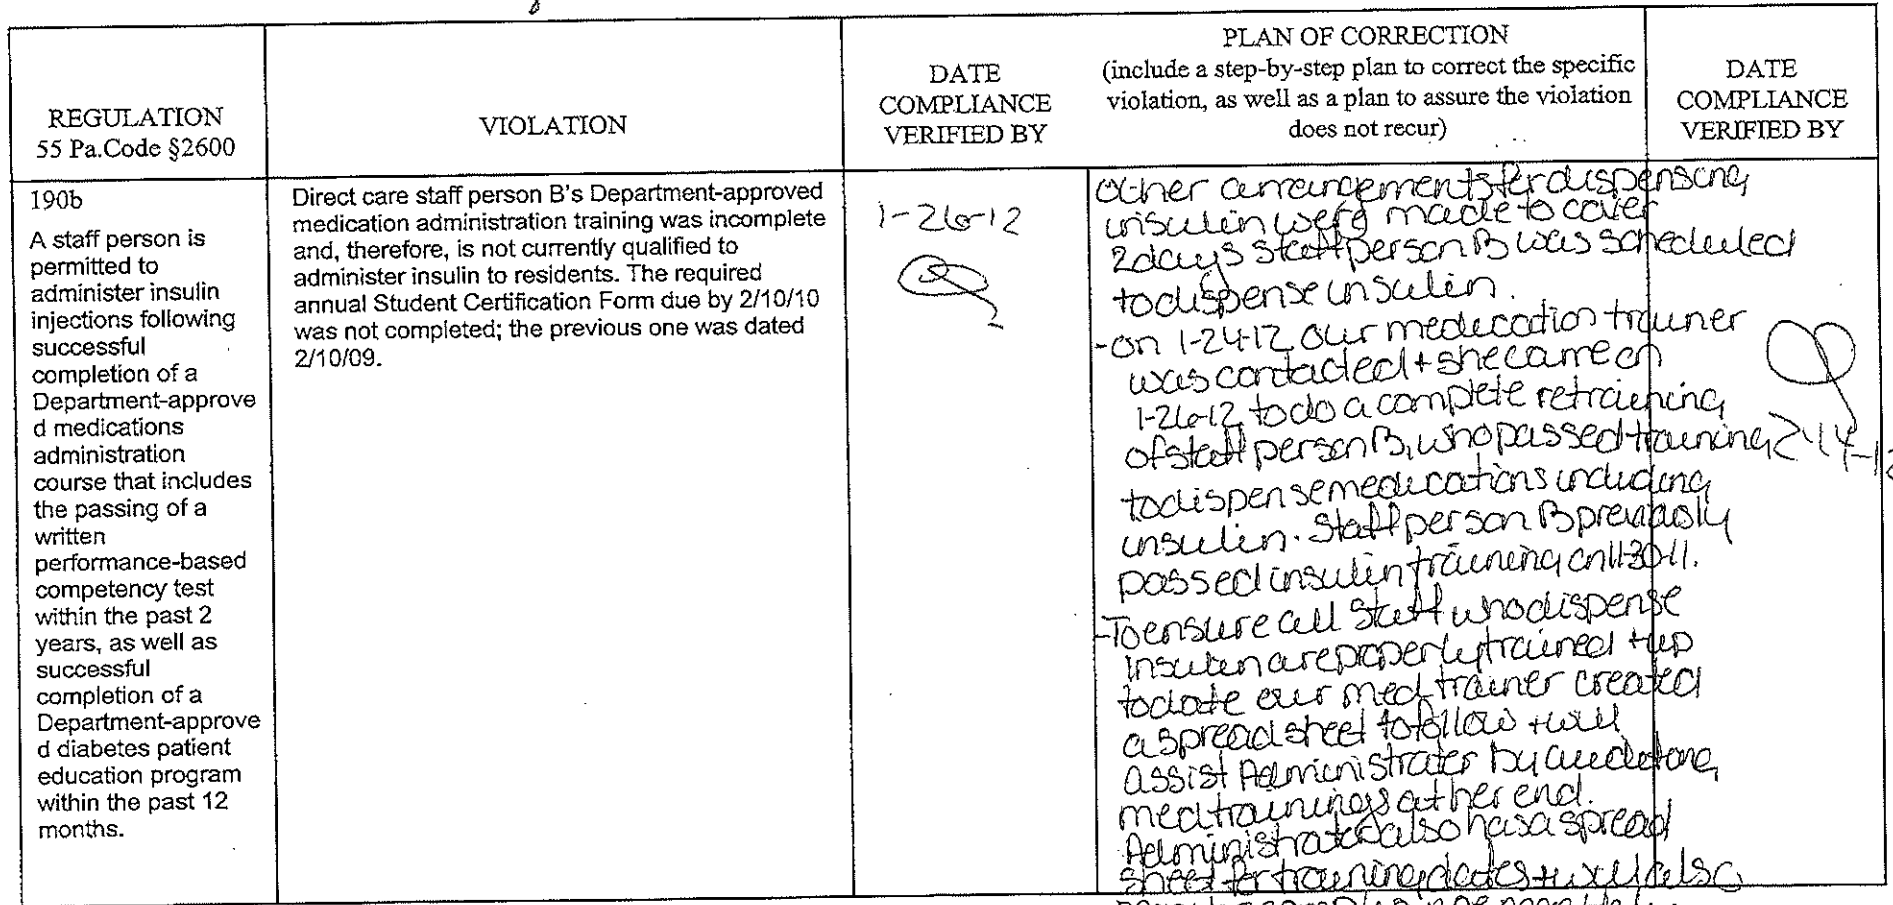 REGULATION
55 Pa.Code §2600
VIOLATION
DATE
COMPLIANCE
VERIFIED BY
PLAN OF CORRECTION
(include a step-by-step plan to correct the specific
violation, as well as a plan to assure the violation
does not recur)
DATE
COMPLIANCE
VERIFIED BY
190b
A staff person is
permitted to
administer insulin
injections following
successful
completion of a
Department-approve
d medications
administration
course that includes
the passing of a
written
performance-based
competency test
within the past 2
years, as well as
successful
completion of a
Department-approve
d diabetes patient
education program
within the past 12
months.
Direct care staff person B's Department-approved
medication administration training was incomplete
and, therefore, is not currently qualified to
administer insulin to residents. The required
annual Student Certification Form due by 2/10/10
was not completed; the previous one was dated
2/10/09.
1-26-12
other arrangements for dispensing
insulin were made to cover
2 days staff person B was scheduled
to dispense insulin.
-on 1-24-12 our medication trainer
was contacted + she came on
1-26-12 to do a complete retraining
of staff person B, who passed training
to dispense medications including
insulin. Staff person B previously
passed insulin training on 11-30-11.
-To ensure all staff who dispense
insulin are properly trained + up
to date our med trainer created
a spread sheet to follow + will
assist Administrator by auditing
med trainings at her end.
Administrator also has a spread
sheet for training dates + will also
2-14-12